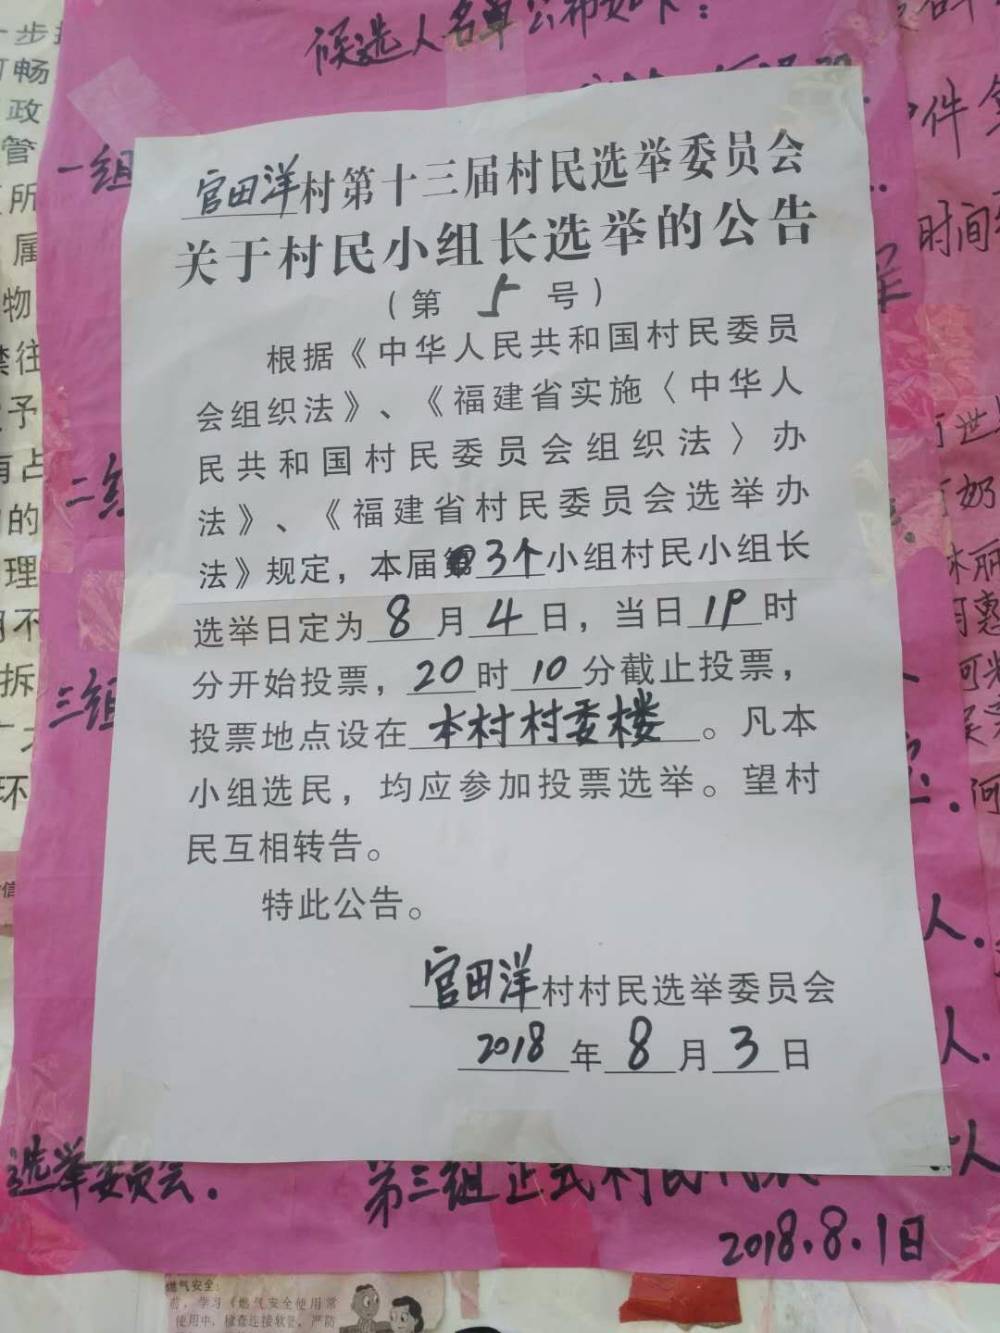 候选人名单公布如下：
一组
官田洋村第十三届村民选举委员会
关于村民小组长选举的公告
（第 5 号）
根据《中华人民共和国村民委员
会组织法》、《福建省实施〈中华人
民共和国村民委员会组织法〉办
法》、《福建省村民委员会选举办
法》规定，本届第3个小组村民小组长
选举日定为8月4日，当日19时
分开始投票，20时10分截止投票，
投票地点设在本村村委楼。凡本
小组选民，均应参加投票选举。望村
民互相转告。
特此公告。
官田洋村村民选举委员会
2018年8月3日
二组
三组
选举委员会.
第三组正式村民代表
2018.8.1日
步
畅
政
管
所
属
物
往
予
有占
的
理
不
拆
环
件
时间
世
奶
林丽
何惠
何
人.
人.
人
燃气安全:
前，学习《燃气安全使用常
使用中，检查连接软管，严防